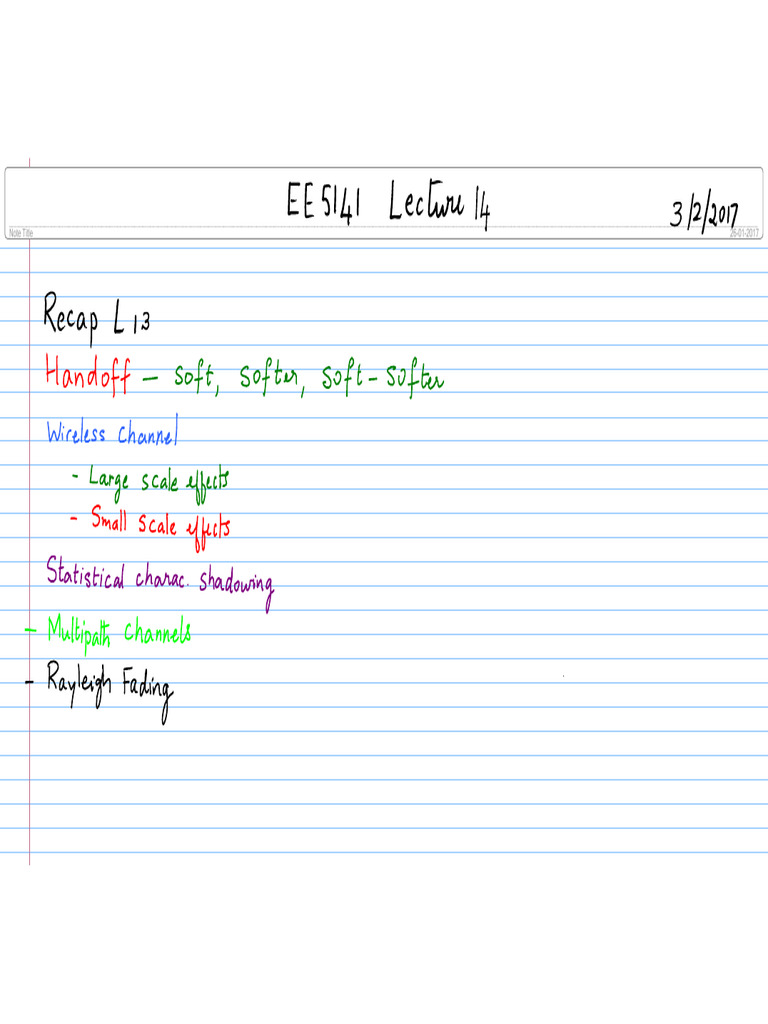 EE5141 Lecture 14
3/2/2017
Note Title
26-01-2017
Recap L13
Handoff – soft, softer, soft-softer
Wireless Channel
- Large scale effects
- Small scale effects
Statistical charac. shadowing
- Multipath channels
- Rayleigh Fading